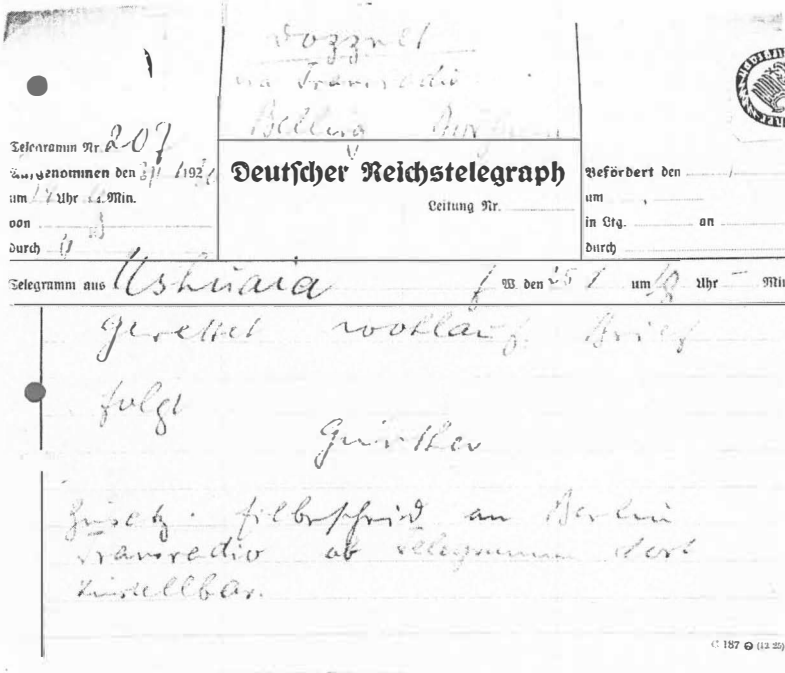 via Transradio
Telegramm Nr. 207
Aufgenommen den 192
um Uhr Min.
von
durch
Deutscher Reichstelegraph
Leitung Nr.
Befördert den
um ,
in Ltg. an
durch
Telegramm aus Ushuaia W. den 25 1 um 18 Uhr – Min
gerettet wohlauf. Brief
folgt
Günther
Zusatz. an Berlin
Transradio ob Telegramm dort
zustellbar.
C 187 (12 25)